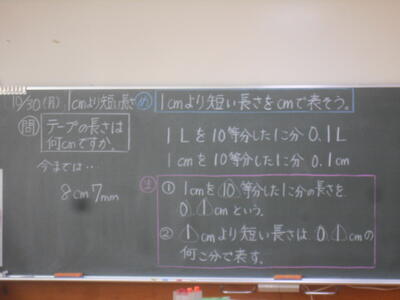 10/30(月) 1cmより短い長さ
め 1cmより短い長さをcmで表そう。
問 テープの長さは
何cmですか。
今までは…
8cm7mm
1Lを10等分した1こ分 0.1L
1cmを10等分した1こ分 0.1cm
ま
① 1cmを10等分した1こ分の長さを
0.1cmという。
② 1cmより短い長さは 0.1cmの
何こ分で表す。